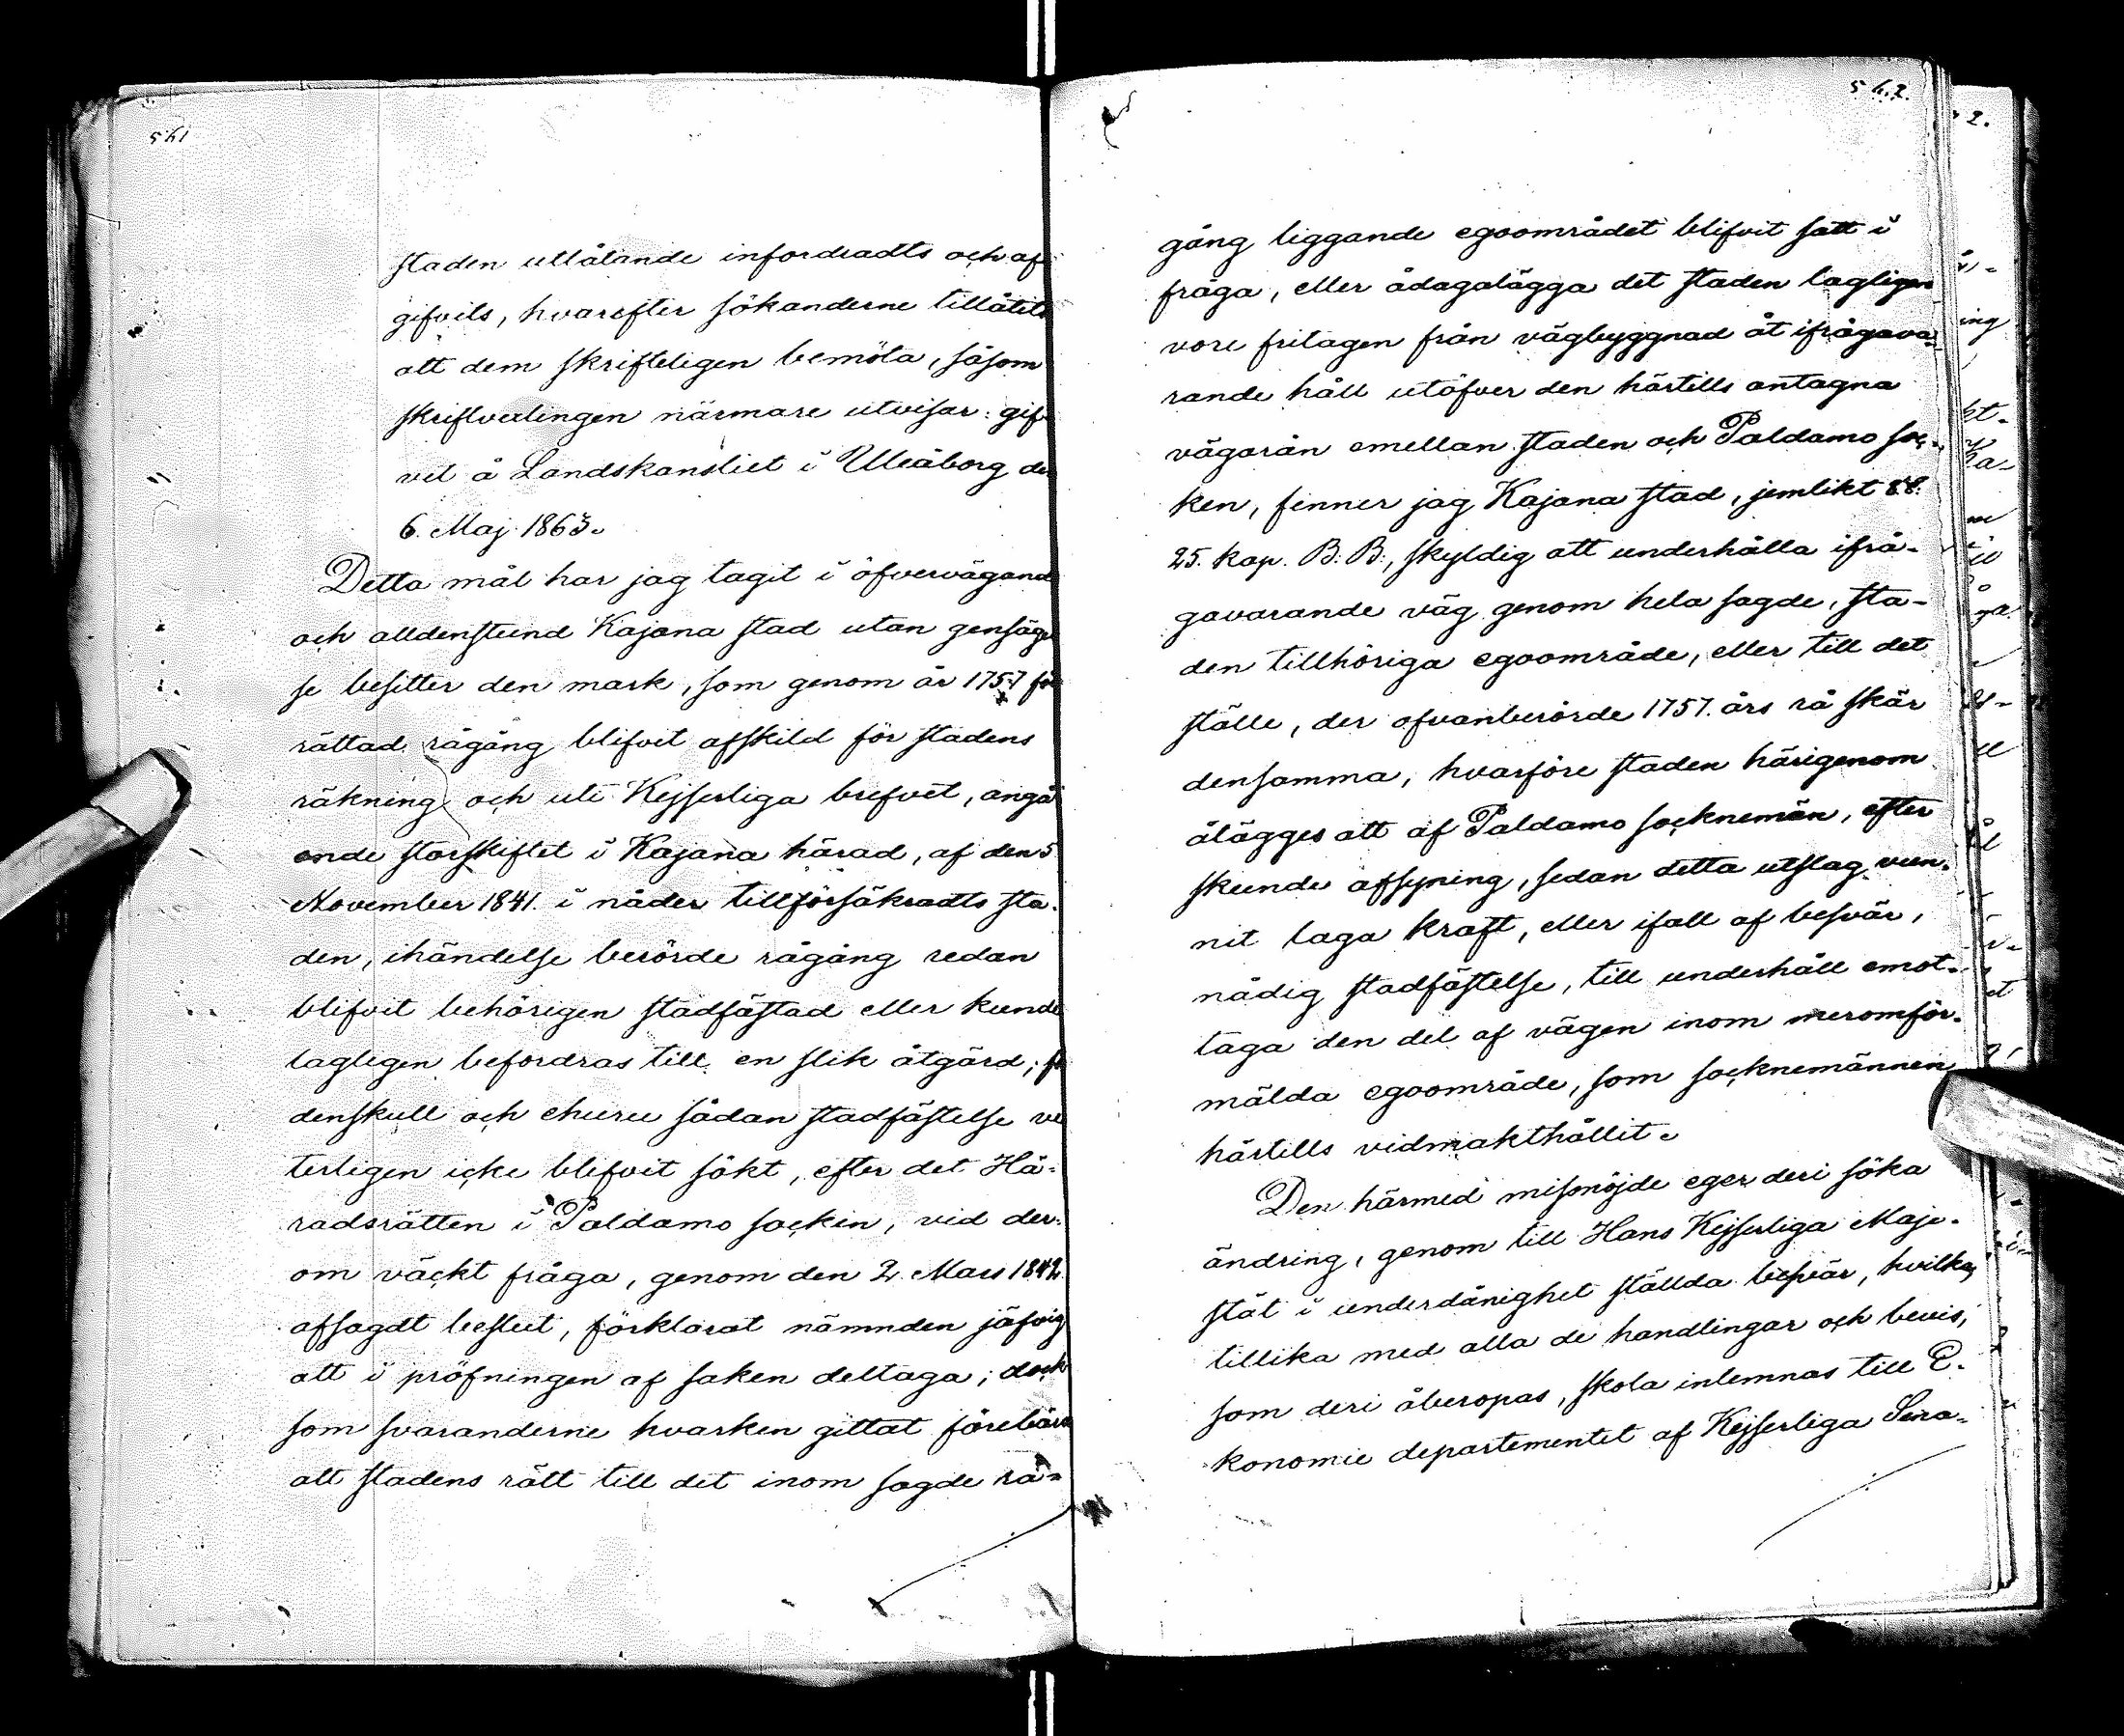 561
staden utlåtande infordradts och af-
gifvits, hvarefter sökanderne tillåtits
att dem skrifteligen bemöta, såsom
skriftvexlingen närmare utvisar: gif-
vet å Landskansliet i Uleåborg den
6. Maj 1863.
Detta mål har jag tagit i öfvervägande
och alldenstund Kajana stad utan gensäge
se besitter den mark, som genom år 1757 för
rättad rågång blifvit afskild för stadens
räkning och uti Kejserliga brefvet, angå
ende storskiftet i Kajana härad, af den 5
November 1841. i nåder tillförsäkradts sta-
den, ihändelse berörde rågång redan
blifvit behörigen stadfästad eller kunde
lagligen befordras till en slik åtgärd; för
denskull och ehuru sådan stadfästelse ve
terligen icke blifvit sökt, efter det Hä-
radsrätten i Paldamo socken, vid der-
om väckt fråga, genom den 2. Mars 1842.
afsagdt beslut, förklarat nämnden jäfvig
att i pröfningen af saken deltaga; dock
som svaranderne hvarken gittat förebära
att stadens rätt till det inom sagde rå-
562.
gång liggande egoområdet blifvit satt i
fråga, eller ådagalägga det staden lagligen
vore fritagen från vägbyggnad åt ifrågava-
rande håll utöfver den härtills antagna
vägarån emellan staden och Paldamo soc-
ken, finner jag Kajana stad, jemlikt §8.
25. kap. B. B., skyldig att underhålla ifrå-
gavarande väg genom hela sagde, sta-
den tillhöriga egoområde, eller till det
ställe, der ofvanberörde 1757. års rå skär
densamma, hvarföre staden härigenom
ålägges att af Paldamo socknemän, efter
skeende afsyning, sedan detta utslag vun-
nit laga kraft, eller ifall af besvär,
nådig stadfästelse, till underhåll emot-
taga den del af vägen inom meromför-
mälda egoområde, som socknemännen
härtills vidmakthållit.
Den härmed missnöjde eger deri söka
ändring, genom till Hans Kejserliga Maje-
stät i underdånighet ställda besvär, hvilka,
tillika med alla de handlingar och bevis,
som deri åberopas, skola inlemnas till E-
konomie departementet af Kejserliga Sena-